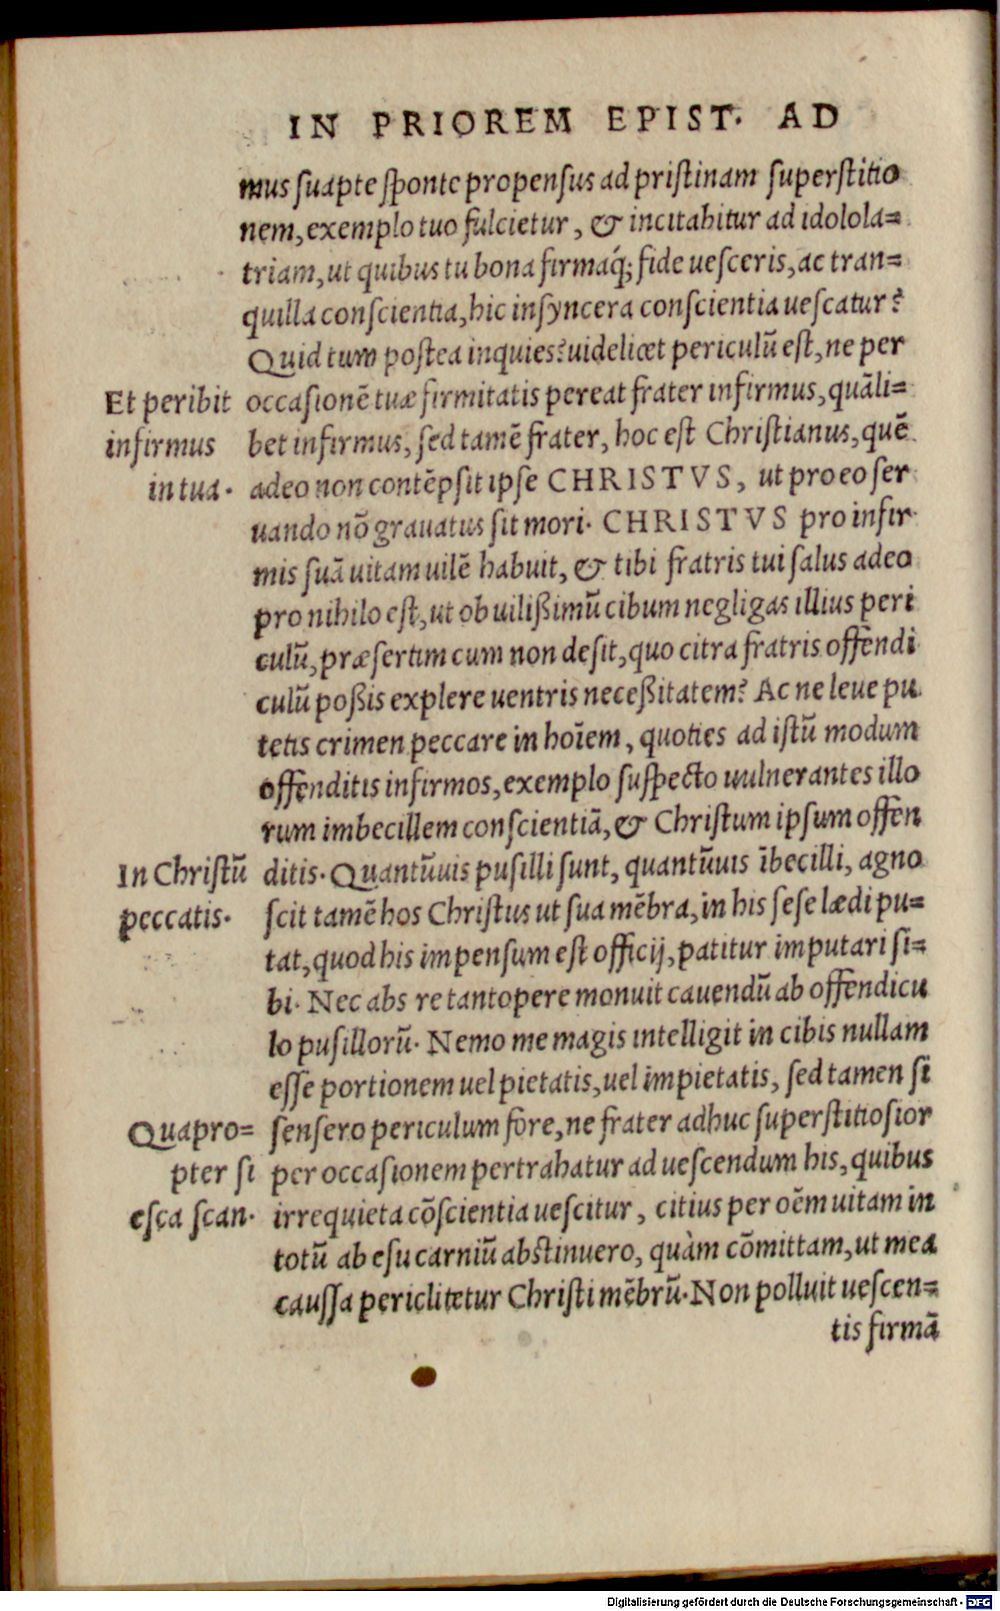 IN PRIOREM EPIST. AD
mus suapte sponte propensus ad pristinam superstitio
nem, exemplo tuo fulcietur, & incitabitur ad idolola=
triam, ut quibus tu bona firmaq́; fide uesceris, ac tran=
quilla conscientia, hic insyncera conscientia uescatur?
Quid tum postea inquies? uidelicet periculū est, ne per
Et peribit
infirmus
in tua.
occasionē tuæ firmitatis pereat frater infirmus, quāli=
bet infirmus, sed tamē frater, hoc est Christianus, quē
adeo non contēpsit ipse CHRISTVS, ut pro eo ser
uando nō grauatus sit mori. CHRISTVS pro infir
mis suā uitam uilē habuit, & tibi fratris tui salus adeo
pro nihilo est, ut ob uilißimū cibum negligas illius peri
culū, præsertim cum non desit, quo citra fratris offendi
culū poßis explere uentris neceßitatem? Ac ne leue pu
tetis crimen peccare in hoīem, quoties ad istū modum
offenditis infirmos, exemplo suspecto uulnerantes illo
rum imbecillem conscientiā, & Christum ipsum offen
In Christū
peccatis.
ditis. Quantūuis pusilli sunt, quantūuis ībecilli, agno
scit tamē hos Christus ut sua mēbra, in his sese lædi pu=
tat, quod his impensum est officij, patitur imputari si=
bi. Nec abs re tantopere monuit cauendū ab offendicu
lo pusillorū. Nemo me magis intelligit in cibis nullam
esse portionem uel pietatis, uel impietatis, sed tamen si
Quapro=
pter si
esca scan.
sensero periculum fore, ne frater adhuc superstitiosior
per occasionem pertrahatur ad uescendum his, quibus
irrequieta cōscientia uescitur, citius per oēm uitam in
totū ab esu carniū abstinuero, quàm cōmittam, ut mea
caussa periclitetur Christi mēbrū. Non polluit uescen=
tis firmā
Digitalisierung gefördert durch die Deutsche Forschungsgemeinschaft - DFG